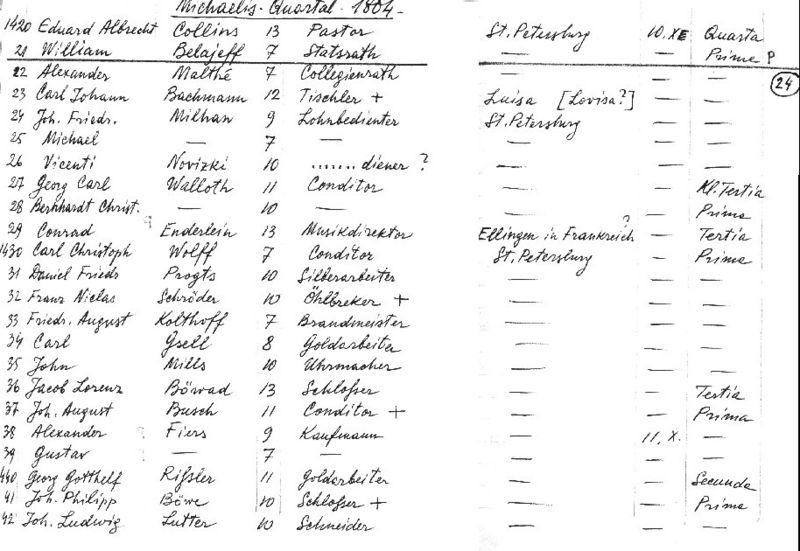 Michaelis-Quartal - 1804.-
1420 Eduard Albrecht Collins 13 Pastor St. Petersburg 10. XE Quarta
21 William Belajeff 7 Statsrath — — Prima P
22 Alexander Malthé 7 Collegienrath — — —
23 Carl Johann Bachmann 12 Tischler + Luisa [Lovisa?] — — 24
24 Joh. Friedr. Milhan 9 Lohnbedienter St. Petersburg — —
25 Michael — 7 — — — —
26 Vicenti Novizki 10 .......diener ? — — —
27 Georg Carl Walloth 11 Conditor — — Kl. Tertia
28 Bernhardt Christ. — 10 — — — Prima
29 Conrad Enderlein 13 Musikdirektor Ellingen in Frankreich ? — Tertia
1430 Carl Christoph Wolff 7 Conditor St. Petersburg — Prima
31 Daniel Friedr Progts 10 Silberarbeiter — — —
32 Franz Niclas Schröder 10 Öhlbreker + — — —
33 Friedr. August Kolthoff 7 Brandmeister — — —
34 Carl Gsell 8 Goldarbeiter — — —
35 John Mills 10 Uhrmacher — — —
36 Jacob Lorenz Böwad 13 Schlosser — — Tertia
37 Joh. August Busch 11 Conditor + — — Prima
38 Alexander Fiers 9 Kaufmann — 11. X. —
39 Gustav — 7 — — — —
440 Georg Gotthelf Rissler 11 Goldarbeiter — — Secunda
41 Joh. Philipp Böwe 10 Schlosser + — — Prima
42 Joh. Ludwig Lutter 10 Schneider — — —